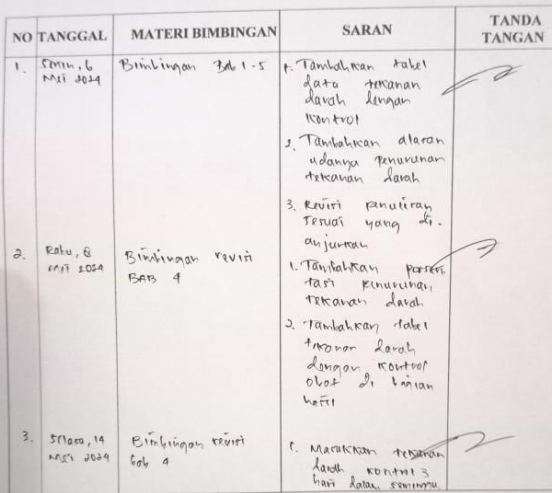 NO TANGGAL MATERI BIMBINGAN SARAN TANDA TANGAN
1. Senin, 6 Mei 2024
Bimbingan Bab 1-5
1. Tambahkan tabel
data tekanan
darah dengan
kontrol
2. Tambahkan alasan
adanya penurunan
tekanan darah
3. Revisi penulisan
sesuai yang di-
anjurkan
2. Rabu, 8 Mei 2024
Bimbingan revisi
BAB 4
1. Tambahkan persen
tasi penurunan
tekanan darah
2. Tambahkan tabel
tekanan darah
dengan kontrol
obat di bagian
hasil
3. Selasa, 14 Mei 2024
Bimbingan revisi
bab 4
1. Masukkan tekanan
darah kontrol 3
hari dalam seminggu